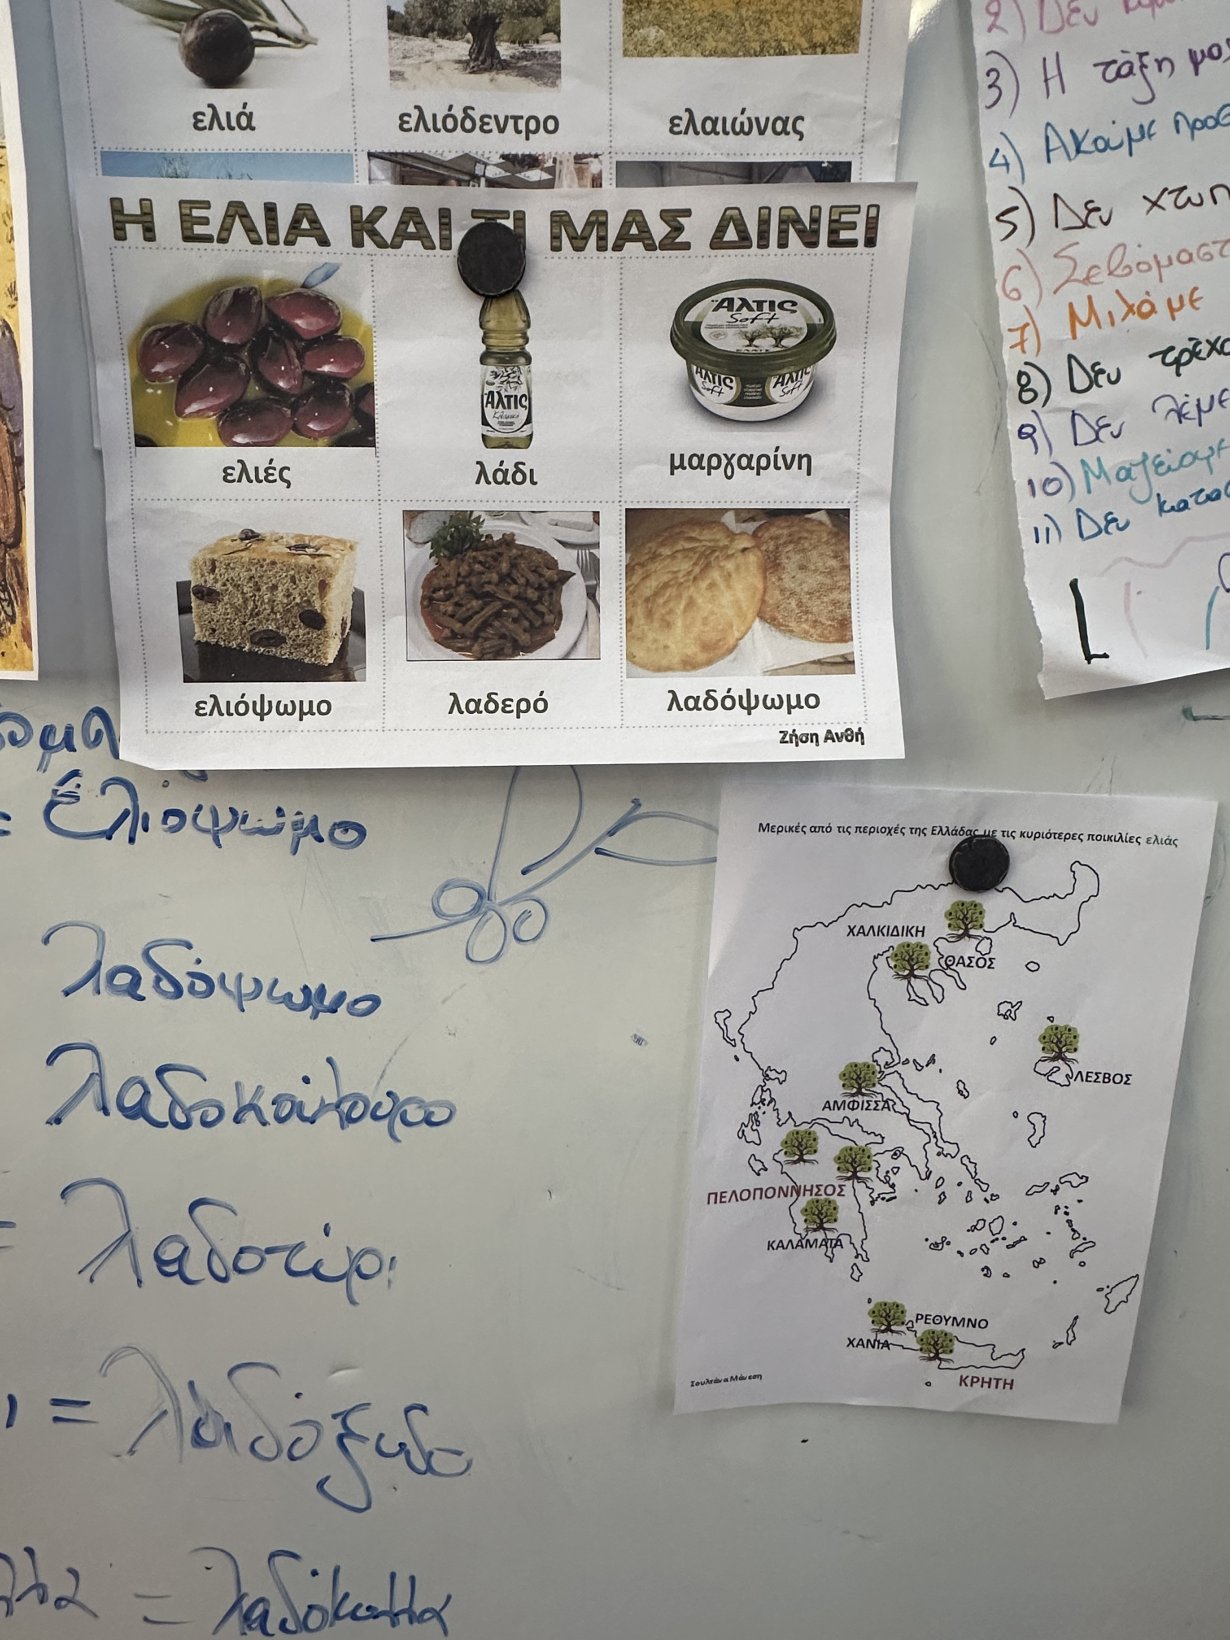 ελιά
ελιόδεντρο
ελαιώνας
Η ΕΛΙΑ ΚΑΙ ΤΙ ΜΑΣ ΔΙΝΕΙ
Άλτις
Soft
Άλτις
Άλτις
Soft
Άλτις
Soft
ελιές
λάδι
μαργαρίνη
ελιόψωμο
λαδερό
λαδόψωμο
Ζήση Ανθή
2) Δεν
3) Η τάξη μας
4) Ακούμε προσ
5) Δεν χτυπ
6) Σεβόμαστ
7) Μιλάμε
8) Δεν τρέχο
9) Δεν λέμε
10) Μαζεύουμε
11) Δεν κατα
= Ελιόψωμο
λαδόψωμο
λαδοκούλουρο
= λαδοτύρι
ι = λαδόξυδο
= λαδόκολλα
Μερικές από τις περιοχές της Ελλάδας με τις κυριότερες ποικιλίες ελιάς
ΧΑΛΚΙΔΙΚΗ
ΘΑΣΟΣ
ΛΕΣΒΟΣ
ΑΜΦΙΣΣΑ
ΠΕΛΟΠΟΝΝΗΣΟΣ
ΚΑΛΑΜΑΤΑ
ΡΕΘΥΜΝΟ
ΧΑΝΙΑ
ΚΡΗΤΗ
Σουλτάνα Μάνεση